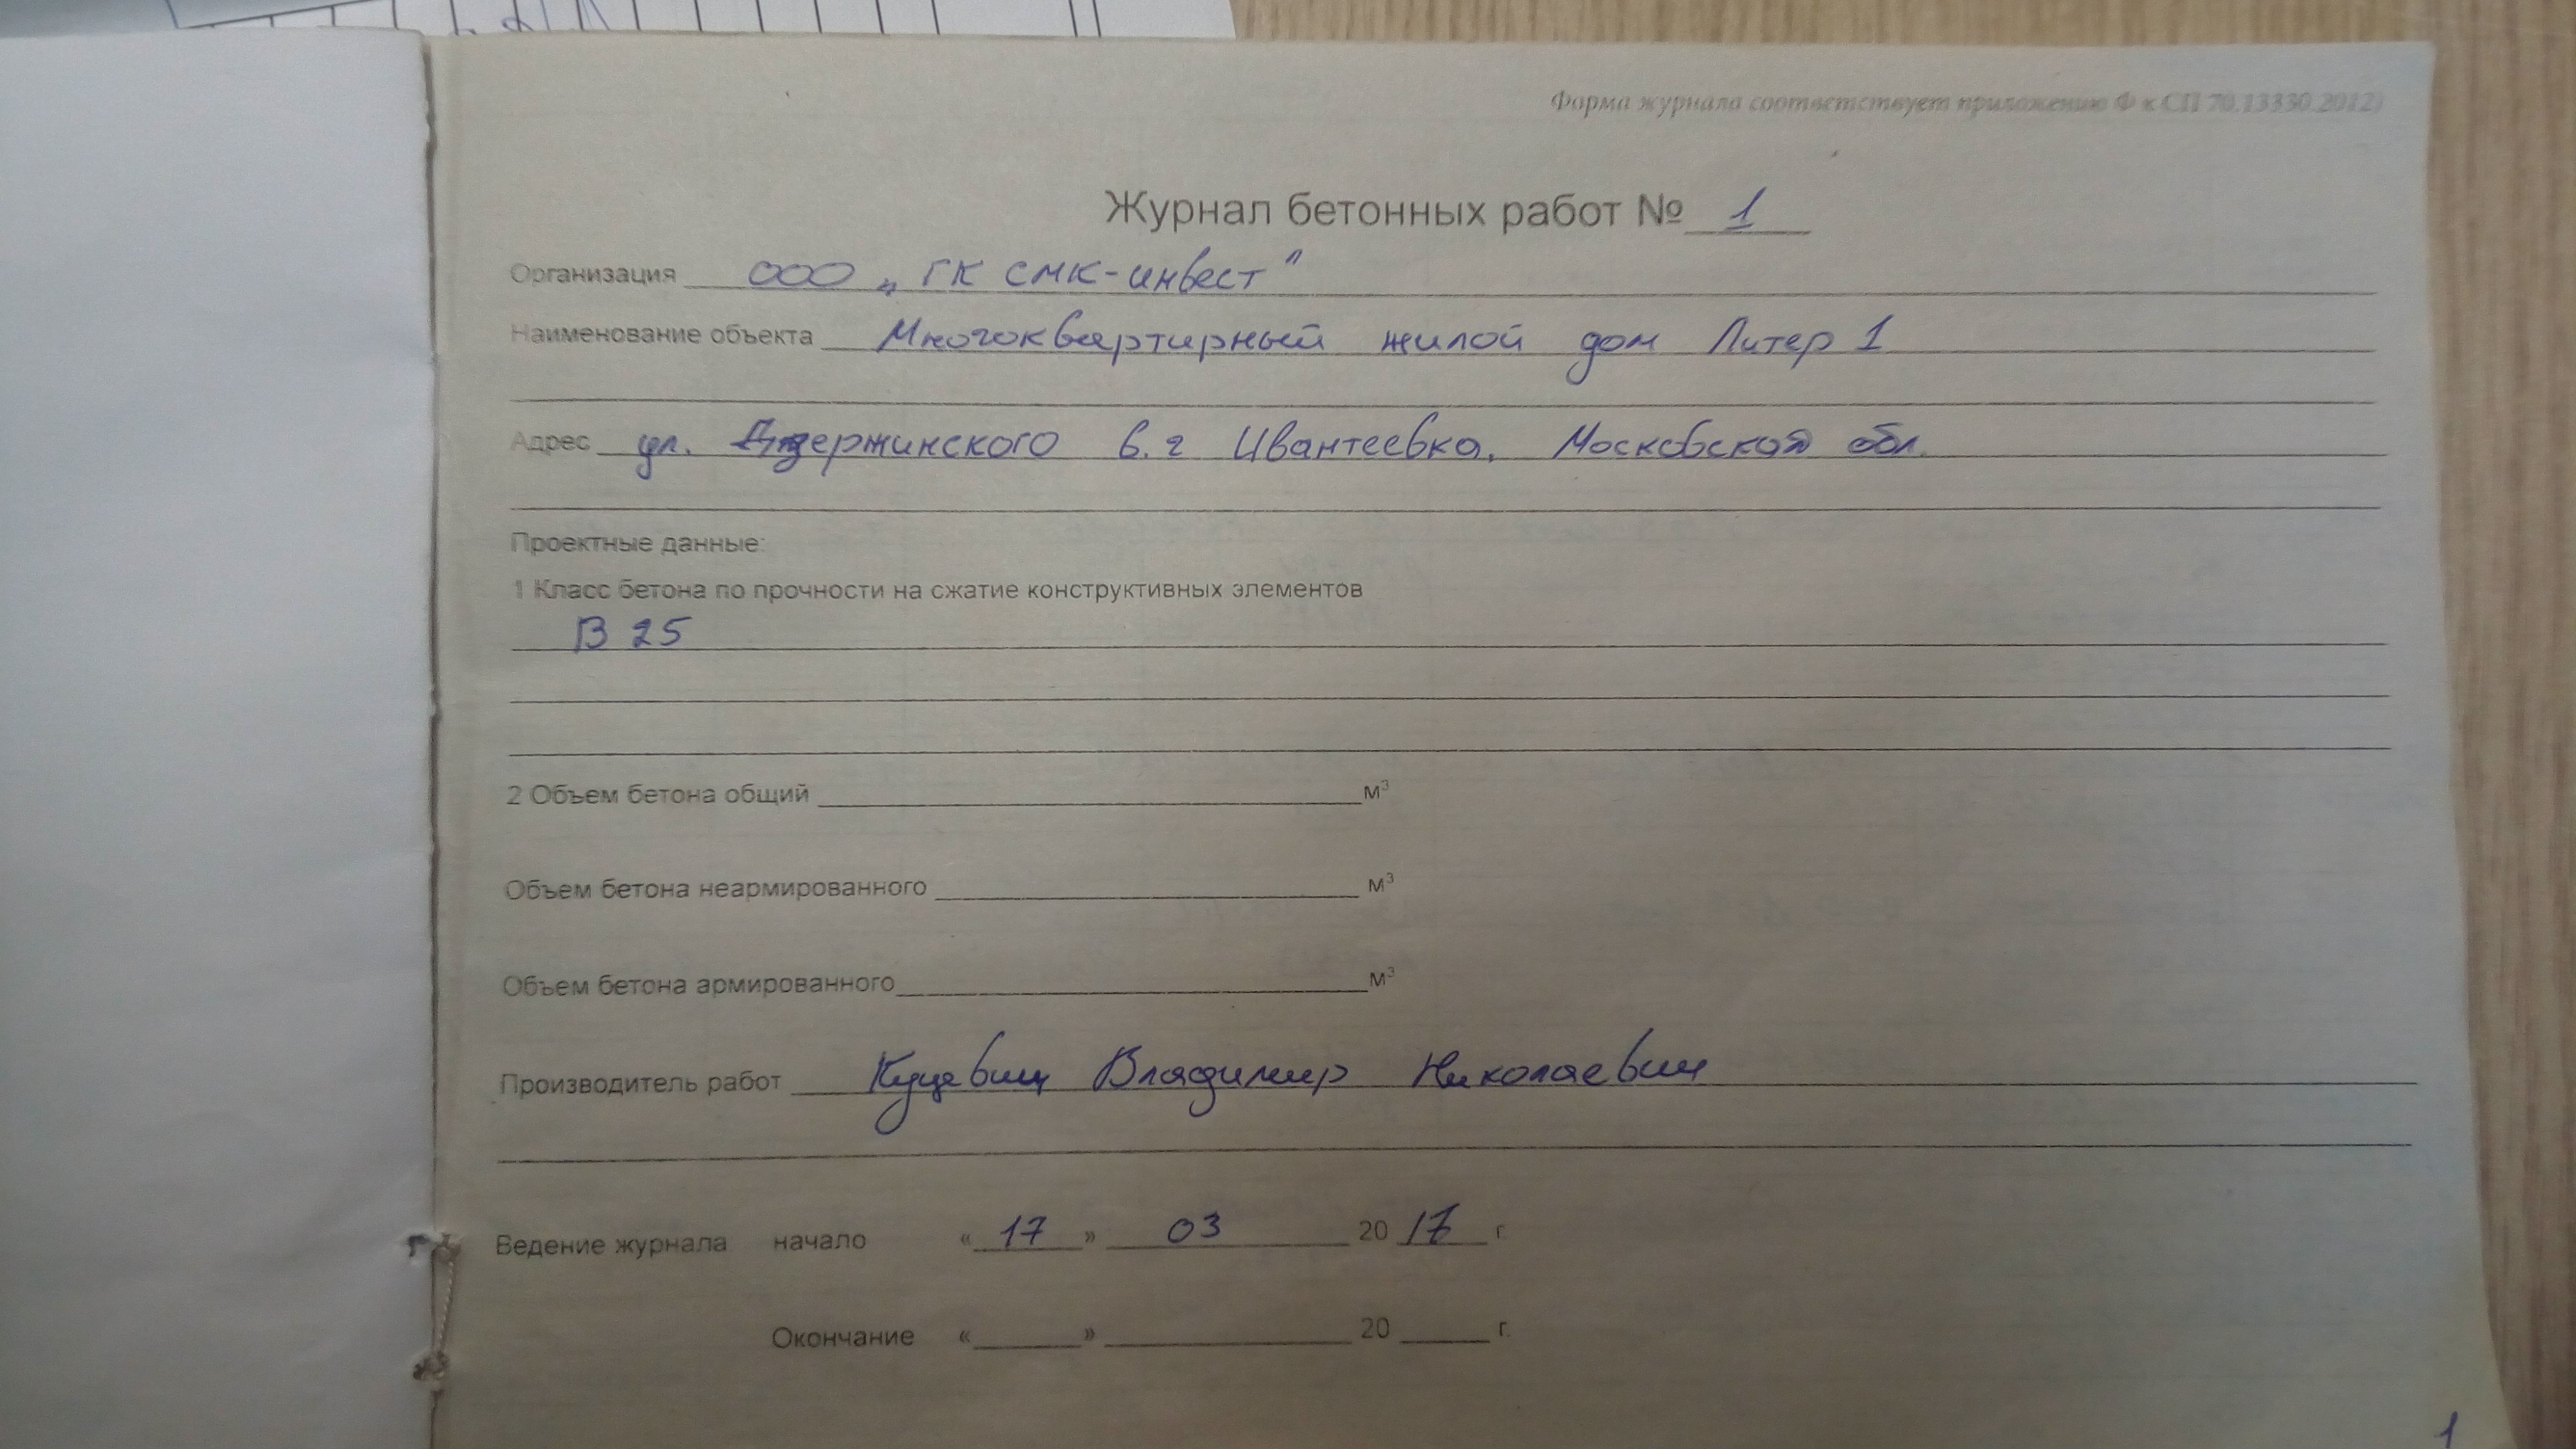 Форма журнала соответствует приложению Ф к СП 70.13330.2012)
Журнал бетонных работ № 1
Организация ООО „ГК СМК-инвест"
Наименование объекта Многоквартирный жилой дом Литер 1
Адрес ул. Дзержинского в.г Ивантеевка, Московская обл.
Проектные данные:
1 Класс бетона по прочности на сжатие конструктивных элементов
В 25
2 Объем бетона общий м³
Объем бетона неармированного м³
Объем бетона армированного м³
Производитель работ Куцевич Владимир Николаевич
Ведение журнала начало « 17 » 03 20 г
Окончание « » 20 г.
1